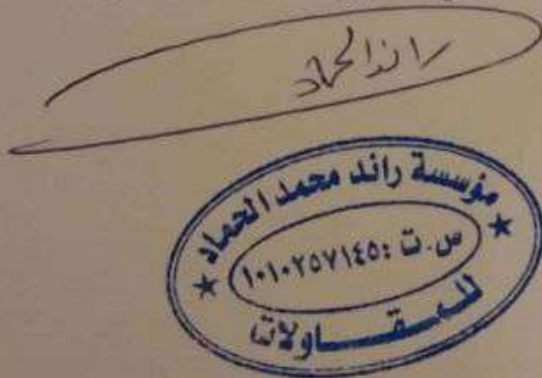 رائد الحماد
مؤسسة رائد محمد الحماد
س.ت : ١٠١٠٢٥٧١٤٥
للمقاولات